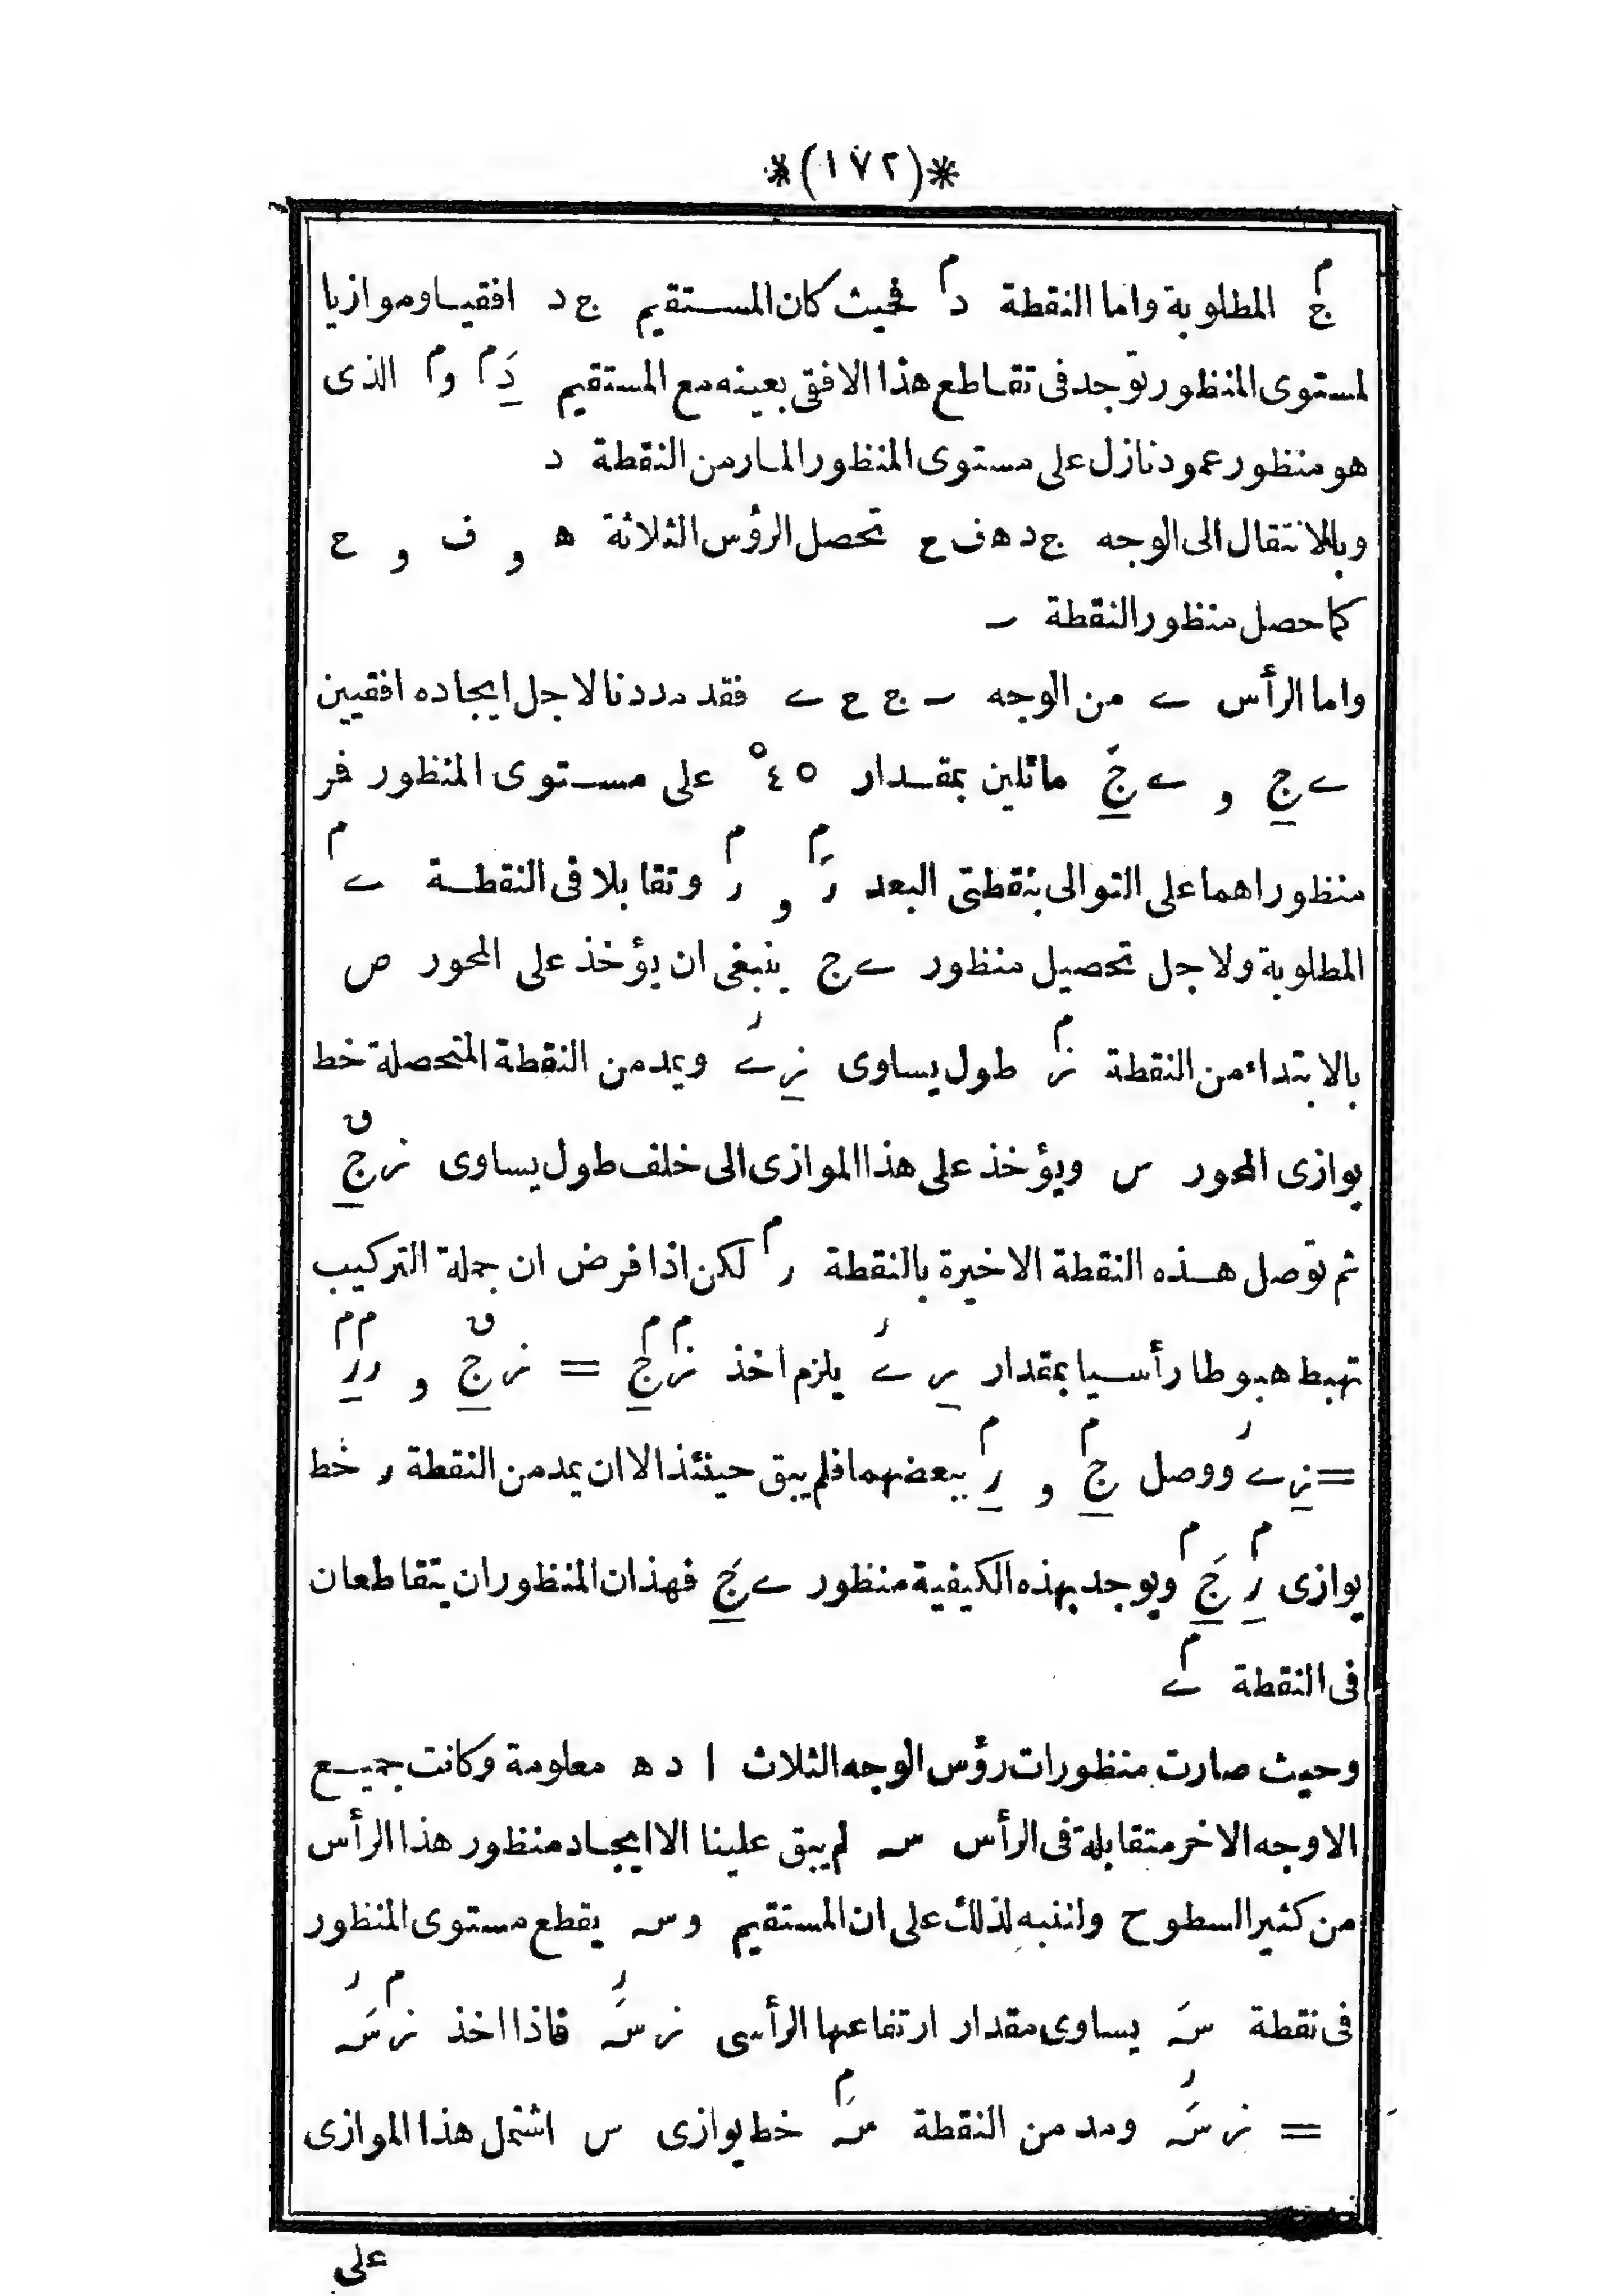 *(١٧٢)*
جم المطلوبة واما النقطة دم فحيث كان المستقيم ج د افقيا وموازيا
لمستوى المنظور توجد فى تقاطع هذا الافقى بعينه مع المستقيم دَم وم الذى
هو منظور عمود نازل على مستوى المنظور المار من النقطة د
وبالانتقال الى الوجه ج د ه ف ع تحصل الرؤس الثلاثة ه و ف و ع
كما حصل منظور النقطة ـ
واما الرأس ے من الوجه ـ ج ع ے فقد مددنا لاجل ايجاده افقيين
ے ج و ے جَ مائلين بمقدار ٤٥° على مستوى المنظور فمر
منظوراهما على التوالى بنقطتى البعد رَم و رم وتقابلا فى النقطة ےم
المطلوبة ولاجل تحصيل منظور ے ج ينبغى ان يؤخذ على المحور ص
بالابتداء من النقطة زم طول يساوى ز ےر ويمد من النقطة المتحصلة خط
يوازى المحور س ويؤخذ على هذا الموازى الى خلف طول يساوى ز جق
ثم توصل هذه النقطة الاخيرة بالنقطة رم لكن اذا فرض ان جملة التركيب
تهبط هبوطا رأسيا بمقدار ر ےر يلزم اخذ زم جم = ز جق و رم رم
= ز ےر ووصل جم و رم ببعضهما فلم يبق حينئذ الا ان يمد من النقطة ر خط
يوازى رم جَم ويوجد بهذه الكيفية منظور ے جَ فهذان المنظوران يتقاطعان
فى النقطة ےم
وحيث صارت منظورات رؤس الوجه الثلاث ا د ه معلومة وكانت جميع
الاوجه الاخر متقابلة فى الرأس سہ لم يبق علينا الا ايجاد منظور هذا الرأس
من كثير السطوح ولننبه لذلك على ان المستقيم وسہ يقطع مستوى المنظور
فى نقطة سَہ يساوى مقدار ارتفاعها الرأسى ز سَہر فاذا اخذ زم سَہر
= ز سَہر ومد من النقطة سَہم خط يوازى س اشتمل هذا الموازى
على